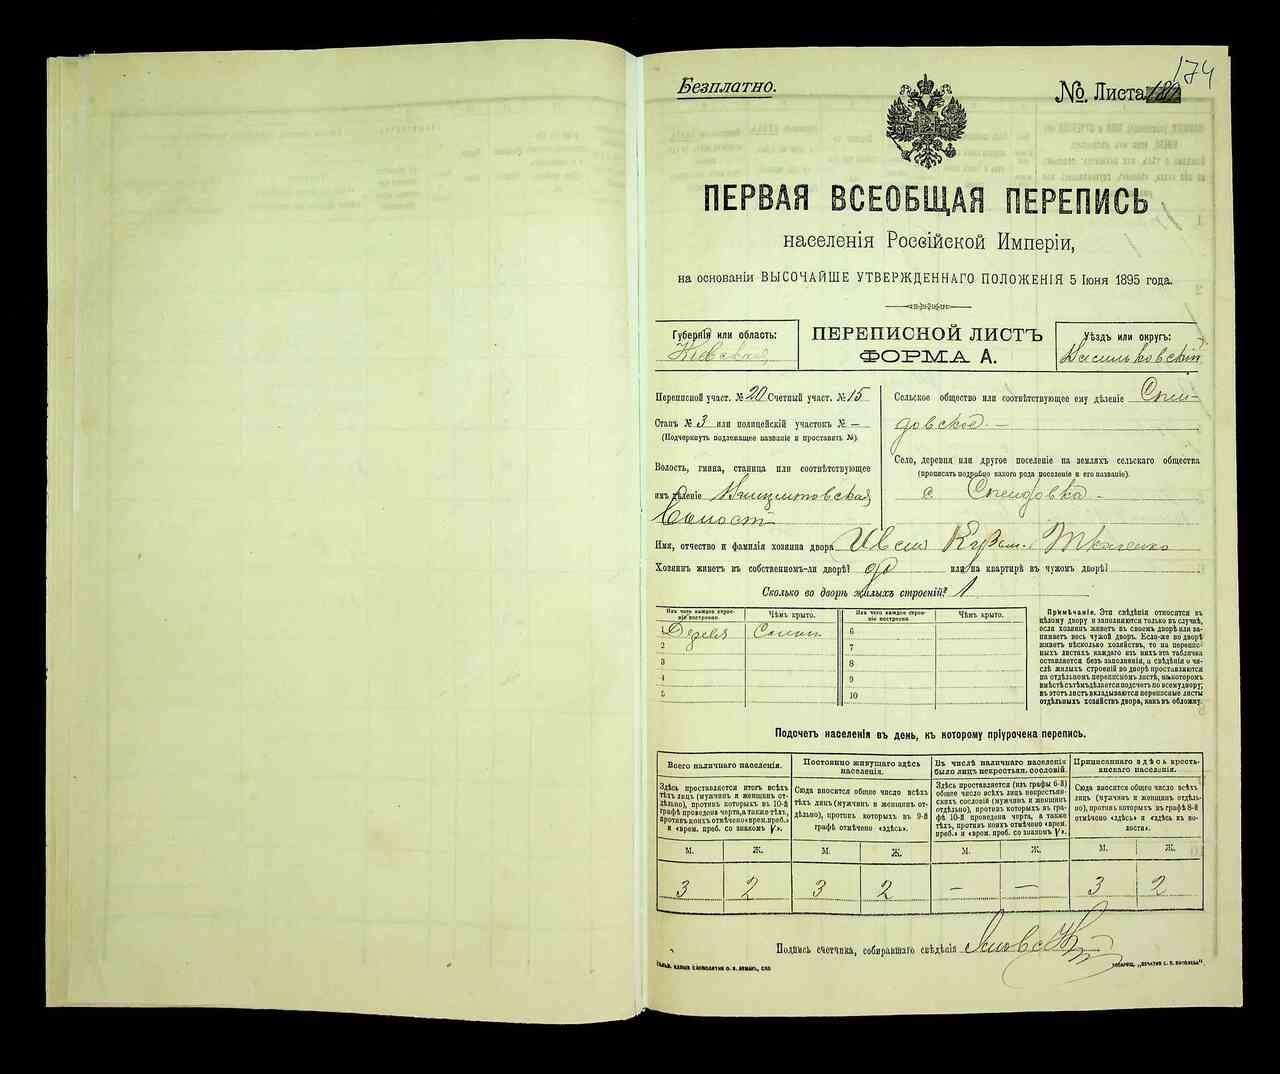 Безплатно.
№. Листа 174
ПЕРВАЯ ВСЕОБЩАЯ ПЕРЕПИСЬ
населенія Россійской Имперіи,
на основаніи ВЫСОЧАЙШЕ УТВЕРЖДЕННАГО ПОЛОЖЕНІЯ 5 Іюня 1895 года.
Губернія или область:
Кіевская
ПЕРЕПИСНОЙ ЛИСТЪ
ФОРМА А.
Уѣздъ или округъ:
Васильковскій
Переписной участ. № 20 Счетный участ. № 15
Станъ № 3 или полицейскій участокъ № —
(Подчеркнуть подлежащее названіе и проставить №).
Волость, гмина, станица или соотвѣтствующее
имъ дѣленіе
Сельское общество или соотвѣтствующее ему дѣленіе
довское. —
Село, деревня или другое поселеніе на земляхъ сельскаго общества
(прописать подробно какого рода поселеніе и его названіе).
с
Имя, отчество и фамилія хозяина двора Кузьм. Ткаченко
Хозяинъ живетъ въ собственномъ-ли дворѣ? да или на квартирѣ въ чужомъ дворѣ?
Сколько во дворѣ жилыхъ строеній? 1
Изъ чего каждое строеніе построено.
Чѣмъ крыто.
Изъ чего каждое строеніе построено.
Чѣмъ крыто.
1 Дерева Солом. 6
2 7
3 8
4 9
5 10
Примѣчаніе. Эти свѣдѣнія относятся къ
цѣлому двору и заполняются только въ случаѣ,
если хозяинъ живетъ въ своемъ дворѣ или за-
нимаетъ весь чужой дворъ. Если-же во дворѣ
живетъ нѣсколько хозяйствъ, то на перепис-
ныхъ листахъ каждаго изъ нихъ эта табличка
оставляется безъ заполненія, а свѣдѣнія о чи-
слѣ жилыхъ строеній во дворѣ проставляются
на отдѣльномъ переписномъ листѣ, на которомъ
вмѣстѣ съ тѣмъ дѣлается подсчетъ по всему двору;
въ этотъ листъ вкладываются переписные листы
отдѣльныхъ хозяйствъ двора, какъ въ обложку.
Подсчетъ населенія въ день, къ которому пріурочена перепись.
Всего наличнаго населенія.
Здѣсь проставляется итогъ всѣхъ
тѣхъ лицъ (мужчинъ и женщинъ от-
дѣльно), противъ которыхъ въ 10-й
графѣ проведена черта, а также тѣхъ,
противъ коихъ отмѣчено «врем. преб.»
и «врем. преб. со знакомъ V».
Постоянно живущаго здѣсь
населенія.
Сюда вносится общее число всѣхъ
тѣхъ лицъ (мужчинъ и женщинъ от-
дѣльно), противъ которыхъ въ 9-й
графѣ отмѣчено «здѣсь».
Въ числѣ наличнаго населенія
было лицъ некрестьян. сословій.
Здѣсь проставляется (изъ графы 6-й)
общее число всѣхъ лицъ некрестьян-
скихъ сословій (мужчинъ и женщинъ
отдѣльно), противъ которыхъ въ гра-
фѣ 10-й проведена черта, а также
тѣхъ, противъ коихъ отмѣчено «врем.
преб.» и «врем. преб. со знакомъ V».
Приписаннаго здѣсь кресть-
янскаго населенія.
Сюда вносится общее число всѣхъ
лицъ (мужчинъ и женщинъ отдѣль-
но), противъ которыхъ въ графѣ 8-й
отмѣчено «здѣсь» и «здѣсь въ во-
лости».
М. Ж. М. Ж. М. Ж. М. Ж.
3 2 3 2 — — 3 2
Подпись счетчика, собиравшаго свѣдѣнія